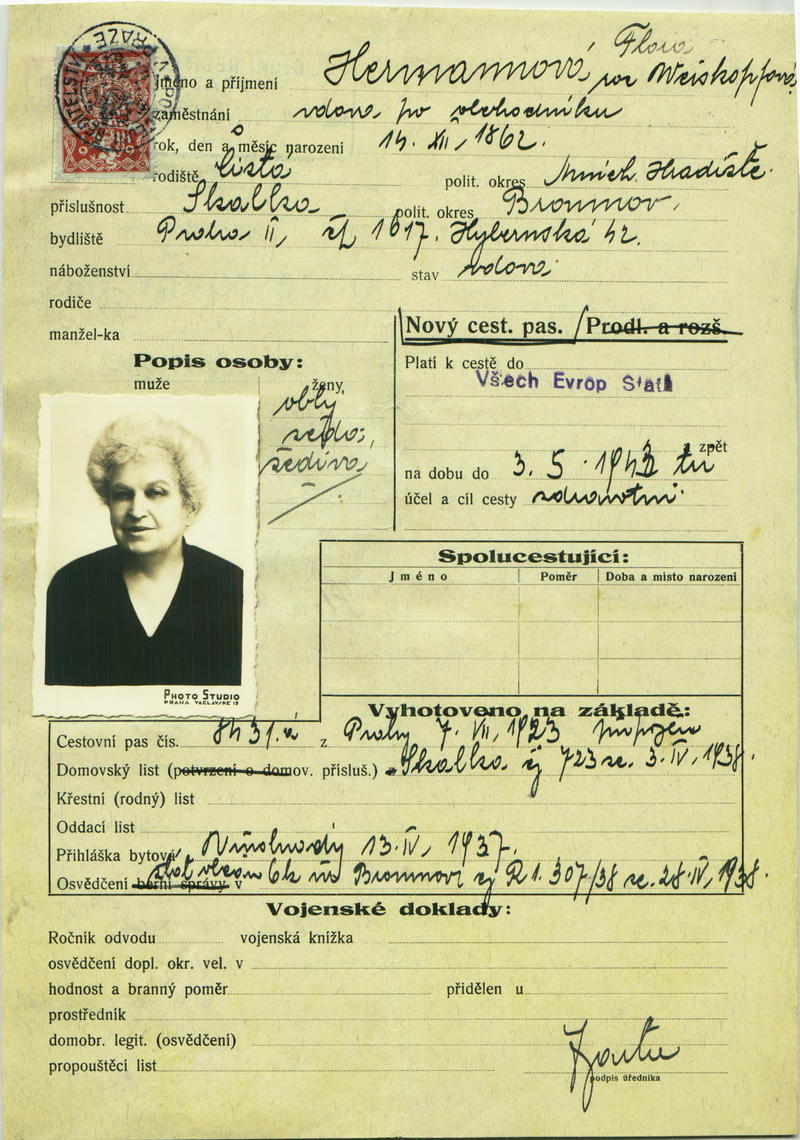 Jméno a příjmení Hermannová Flora roz Weiskopfová
zaměstnání vdova po obchodníku
rok, den a měsíc narození 14. XII, 1862.
rodiště Lístá polit. okres Mnich. Hradiště.
příslušnost Skalka polit. okres Broumov,
bydliště Praha II, čp 1617. Hybernská 42.
náboženství stav vdova
rodiče
manžel-ka
Nový cest. pas. / Prodl. a rozš.
Platí k cestě do
Všech Evrop Stát
zpět
na dobu do 3. 5. 1943
účel a cíl cesty zdravotní
Popis osoby:
muže ženy
oblý
šedo,
šedivá
PHOTO STUDIO
PRAHA VÁCLAVSKÉ
Spolucestující:
Jméno Poměr Doba a místo narození
Vyhotoveno na základě:
Cestovní pas čís. z Prahy 7. VII, 1923 připojen
Domovský list (potvrzení o domov. přísluš.) Skalka čj 723 ze 3. IV, 1938.
Křestní (rodný) list
Oddací list
Přihláška bytová Vinohrady 13. IV, 1937.
Osvědčení berní správy v Broumově čj R 1. 307/38 ze 28. IV, 1938.
Vojenské doklady:
Ročník odvodu vojenská knížka
osvědčení dopl. okr. vel. v
hodnost a branný poměr přidělen u
prostředník
domobr. legit. (osvědčení)
propouštěcí list
podpis úředníka